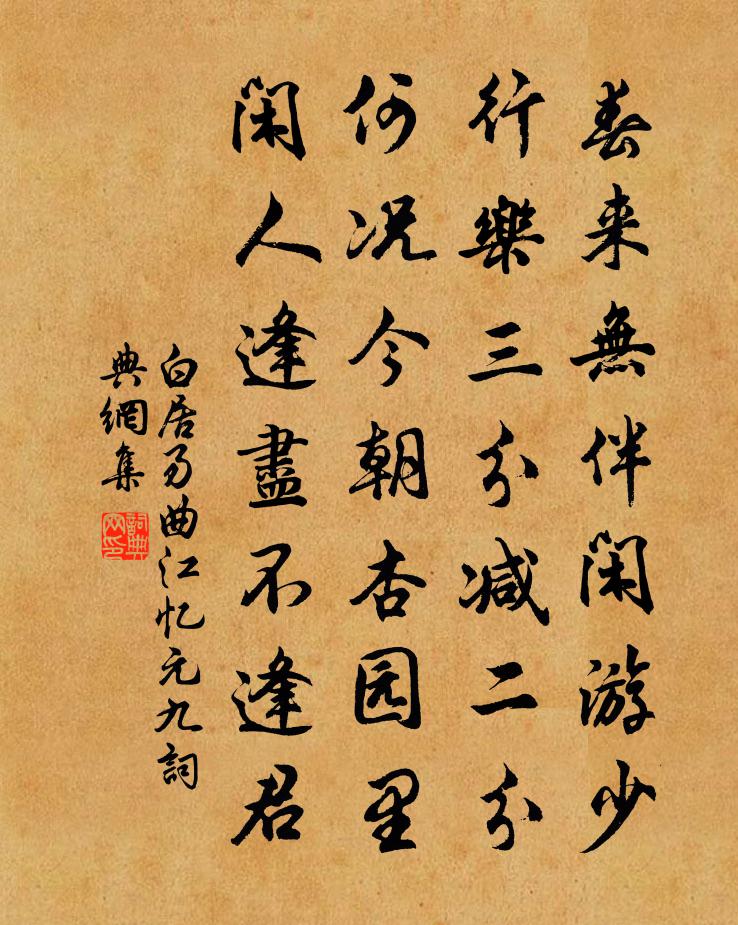 春来無伴闲游少
行樂三分减二分
何况今朝杏园里
闲人逢盡不逢君
白居易曲江忆元九詞
典網集
詞典网印